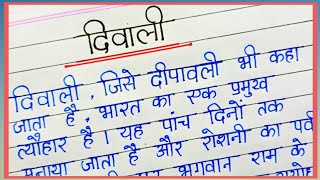 दिवाली
दिवाली, जिसे दीपावली भी कहा
जाता है, भारत का एक प्रमुख
त्यौहार है। यह पांच दिनों तक
मनाया जाता है और रोशनी का पर्व
भगवान राम के